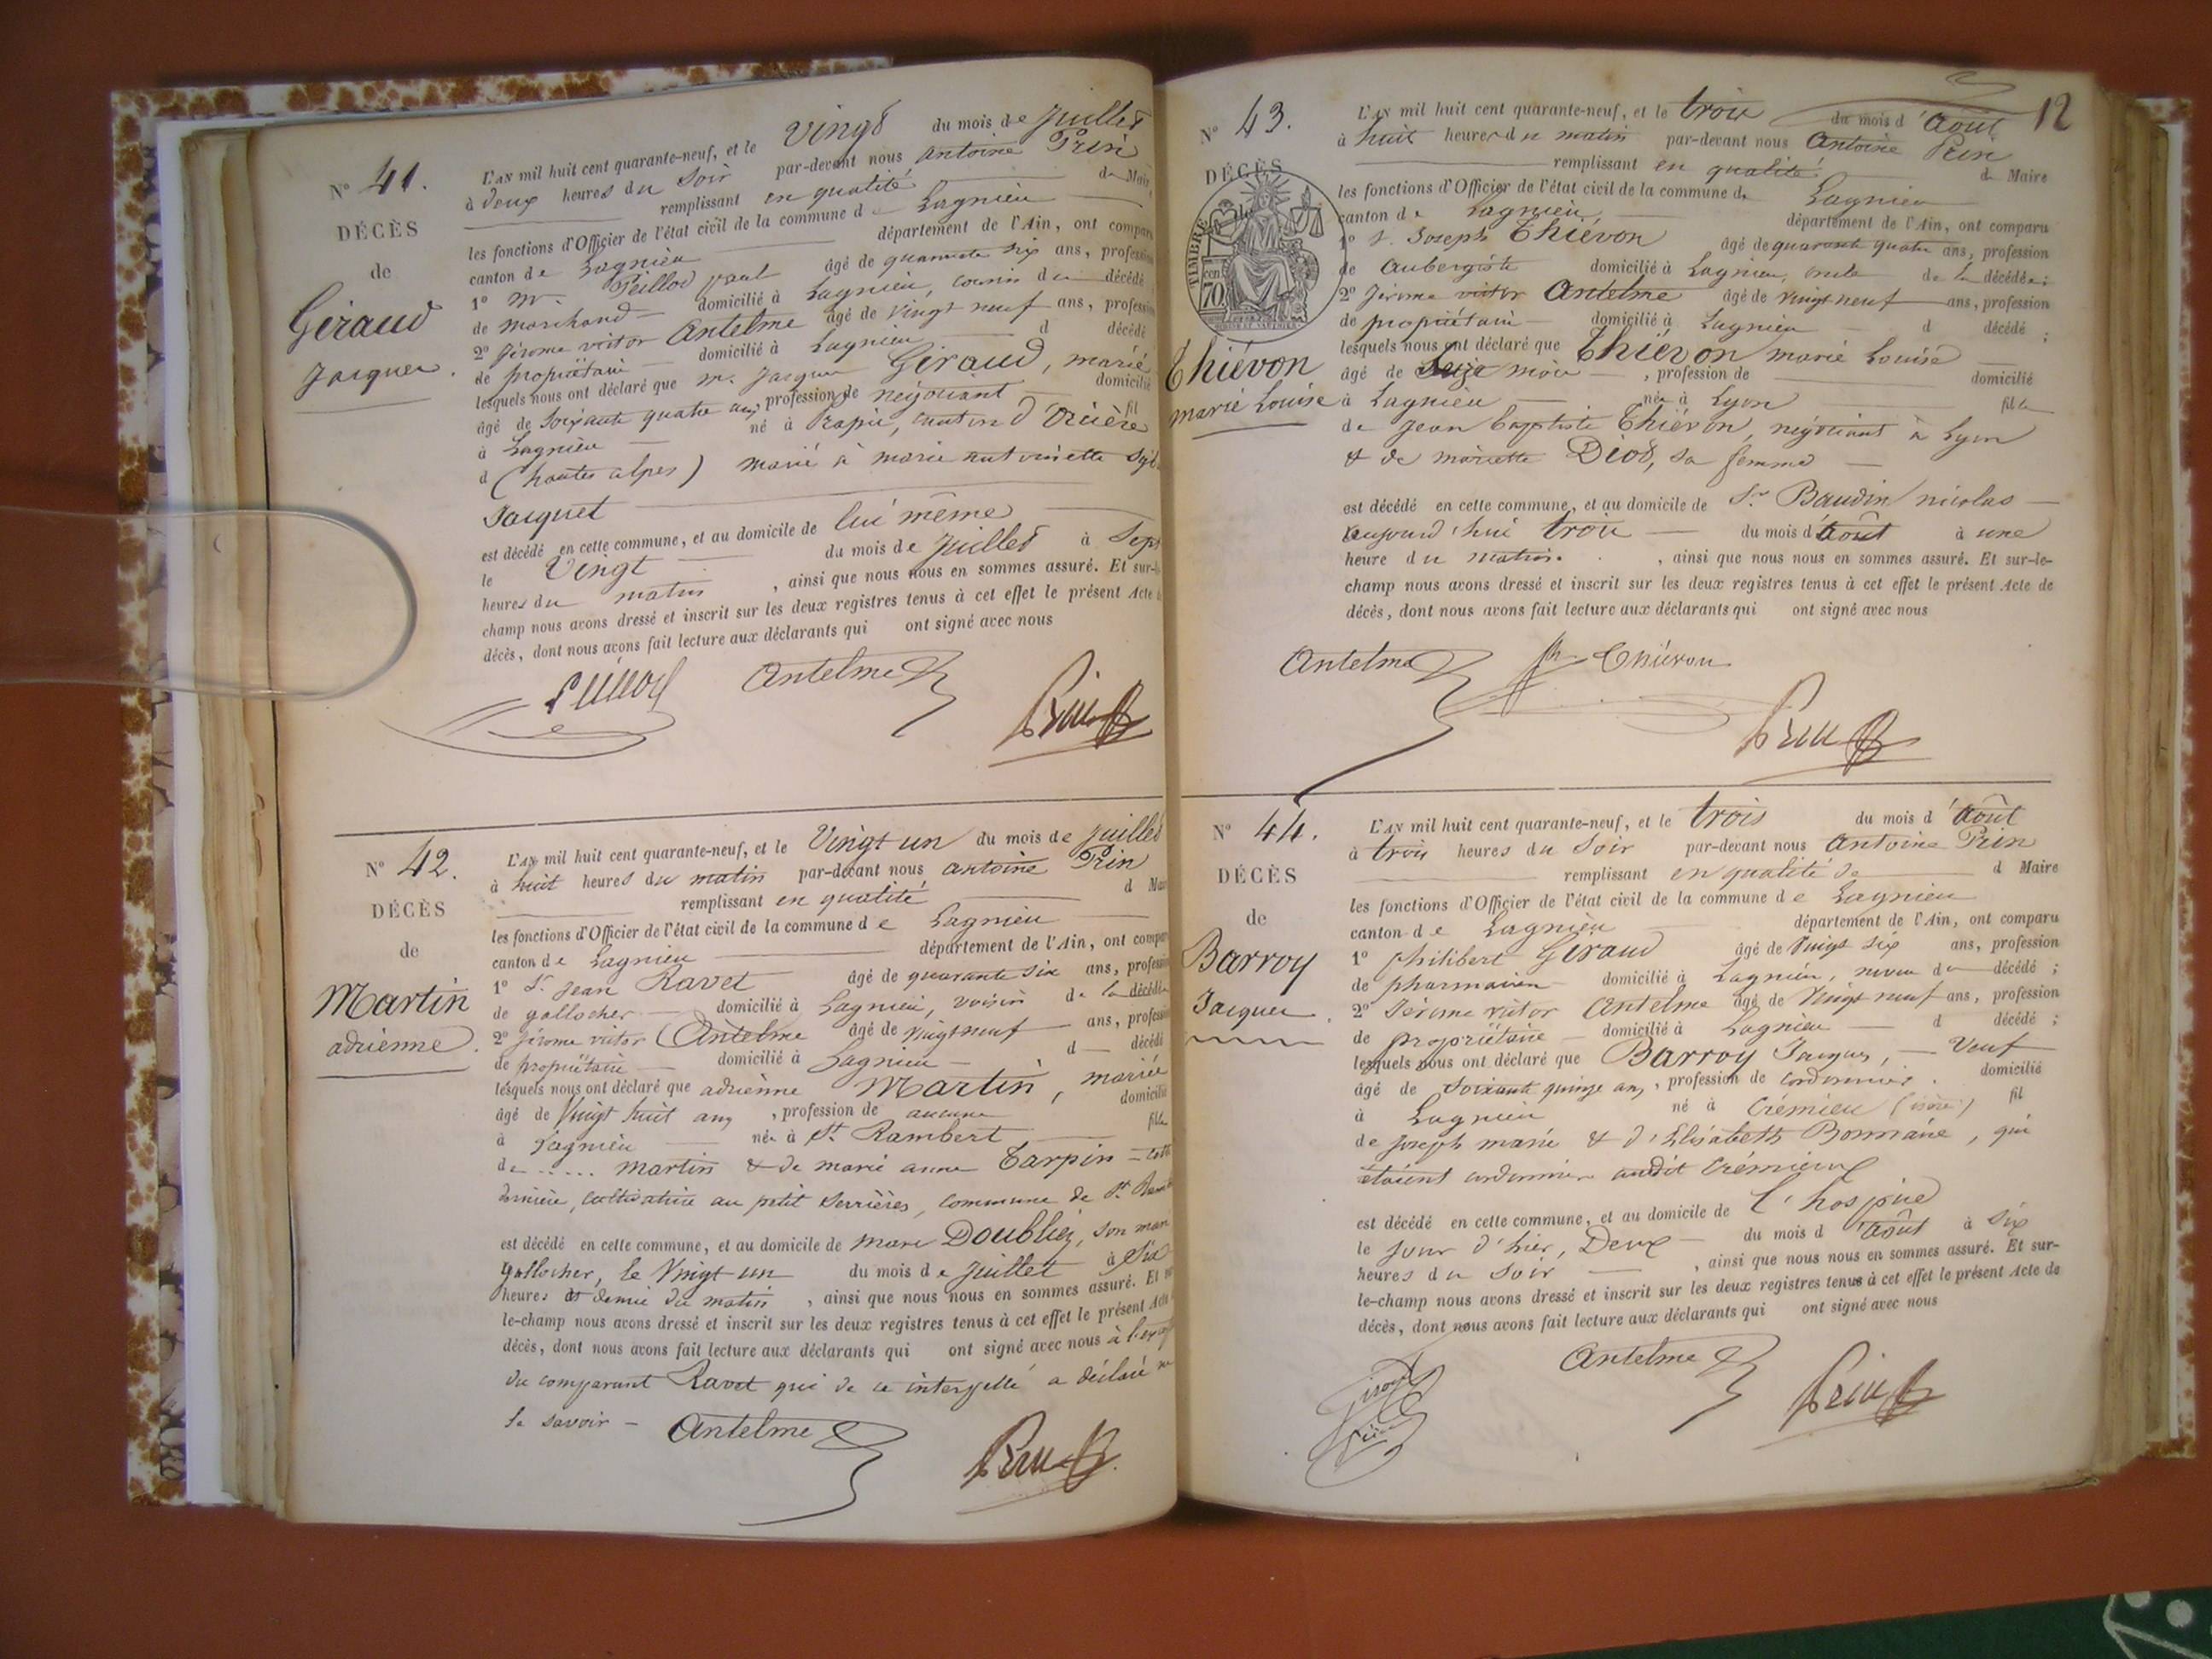 N° 41.
DÉCÈS
de
Géraud
Jacques.
L'AN mil huit cent quarante-neuf, et le vingt du mois de Juillet
à deux heures du soir par-devant nous Antoine Prin
remplissant en qualité de Mair
les fonctions d'Officier de l'état civil de la commune de Lagnieu
canton de Lagnieu département de l'Ain, ont comparu
1° Mr. Peillod paul âgé de quarante six ans, profession
de marchand domicilié à Lagnieu, cousin du décédé
2° Jérome victor Antelme âgé de vingt neuf ans, profession
de propriétaire domicilié à Lagnieu d décédé
lesquels nous ont déclaré que m. Jacques Géraud, marié
âgé de soixante quatre ans, profession de négociant domicilié
à Lagnieu né à canton d'Orcière fil
d (hautes alpes) marié à marie antoinette
Jacquet
est décédé en cette commune, et au domicile de lui même
le Vingt du mois de Juillet à Sept
heures du matin, ainsi que nous nous en sommes assuré. Et sur-le-
champ nous avons dressé et inscrit sur les deux registres tenus à cet effet le présent Acte de
décès, dont nous avons fait lecture aux déclarants qui ont signé avec nous
Antelme
Prin
N° 42.
DÉCÈS
de
Martin
adrienne.
L'AN mil huit cent quarante-neuf, et le Vingt un du mois de Juillet
à huit heures du matin par-devant nous antoine Prin
remplissant en qualité d Mai
les fonctions d'Officier de l'état civil de la commune de Lagnieu
canton de Lagnieu département de l'Ain, ont comparu
1° Sr. Jean Ravet âgé de quarante six ans, profession
de gallocher domicilié à Lagnieu, voisin de la décédée
2° Jérome victor Antelme âgé de vingt neuf ans, profession
de propriétaire domicilié à Lagnieu d décédé
lesquels nous ont déclaré que adrienne Martin, mariée
âgé de Vingt huit ans, profession de aucune domicilié
à Lagnieu née à St. Rambert fille
de ..... martin & de marie anne Tarpin = cette
dernière, cultivatrice au petit Serrières, commune de St. Ramb
est décédé en cette commune, et au domicile de marc Doublier, son mari
gallocher, le Vingt un du mois de Juillet à Six
heures et demie du matin, ainsi que nous nous en sommes assuré. Et sur
le-champ nous avons dressé et inscrit sur les deux registres tenus à cet effet le présent Acte
décès, dont nous avons fait lecture aux déclarants qui ont signé avec nous à l'excep
du comparant Ravet qui de ce interpellé a déclaré ne
le savoir - Antelme
Prin
12
N° 43.
DÉCÈS
de
TIMBRE
70
Thiévon
marie Louise
L'AN mil huit cent quarante-neuf, et le trois du mois d'Août
à huit heures du matin par-devant nous Antoine Prin
remplissant en qualité de Maire
les fonctions d'Officier de l'état civil de la commune de Lagnieu
canton de Lagnieu, département de l'Ain, ont comparu
1° S. Joseph Thiévon âgé de quarante quatre ans, profession
de Aubergiste domicilié à Lagnieu, oncle de la décédée;
2° Jérome victor Antelme âgé de vingt neuf ans, profession
de propriétaire domicilié à Lagnieu d décédé;
lesquels nous ont déclaré que Thiévon marie Louise
âgé de Seize mois, profession de domicilié
à Lagnieu née à Lyon fille
de Jean Baptiste Thiévon, négociant à Lyon
& de mariette Diod, sa femme
est décédé en cette commune, et au domicile de Sr. Baudin nicolas
aujourd'hui trois du mois d'Août à une
heure du matin., ainsi que nous nous en sommes assuré. Et sur-le-
champ nous avons dressé et inscrit sur les deux registres tenus à cet effet le présent Acte de
décès, dont nous avons fait lecture aux déclarants qui ont signé avec nous
Antelme Jh Thiévon
Prin
N° 44.
DÉCÈS
de
Barroy
Jacques.
L'AN mil huit cent quarante-neuf, et le trois du mois d'Août
à trois heures du soir par-devant nous Antoine Prin
remplissant en qualité de d Maire
les fonctions d'Officier de l'état civil de la commune de Lagnieu
canton de Lagnieu département de l'Ain, ont comparu
1° philibert Géraud âgé de Vingt six ans, profession
de pharmacien domicilié à Lagnieu, neveu du décédé;
2° Jérome victor Antelme âgé de Vingt neuf ans, profession
de propriétaire domicilié à Lagnieu d décédé;
lesquels nous ont déclaré que Barroy Jacques, Veuf
âgé de soixante quinze ans, profession de cordonnier. domicilié
à Lagnieu né à Crémieu (isère) fil
de Joseph marie & d'Elisabeth, qui
étaient cordonnier audit Crémieux
est décédé en cette commune, et au domicile de l'hospice
le jour d'hier, Deux du mois d'Août à Six
heures du Soir, ainsi que nous nous en sommes assuré. Et sur-
le-champ nous avons dressé et inscrit sur les deux registres tenus à cet effet le présent Acte de
décès, dont nous avons fait lecture aux déclarants qui ont signé avec nous
Antelme
Prin